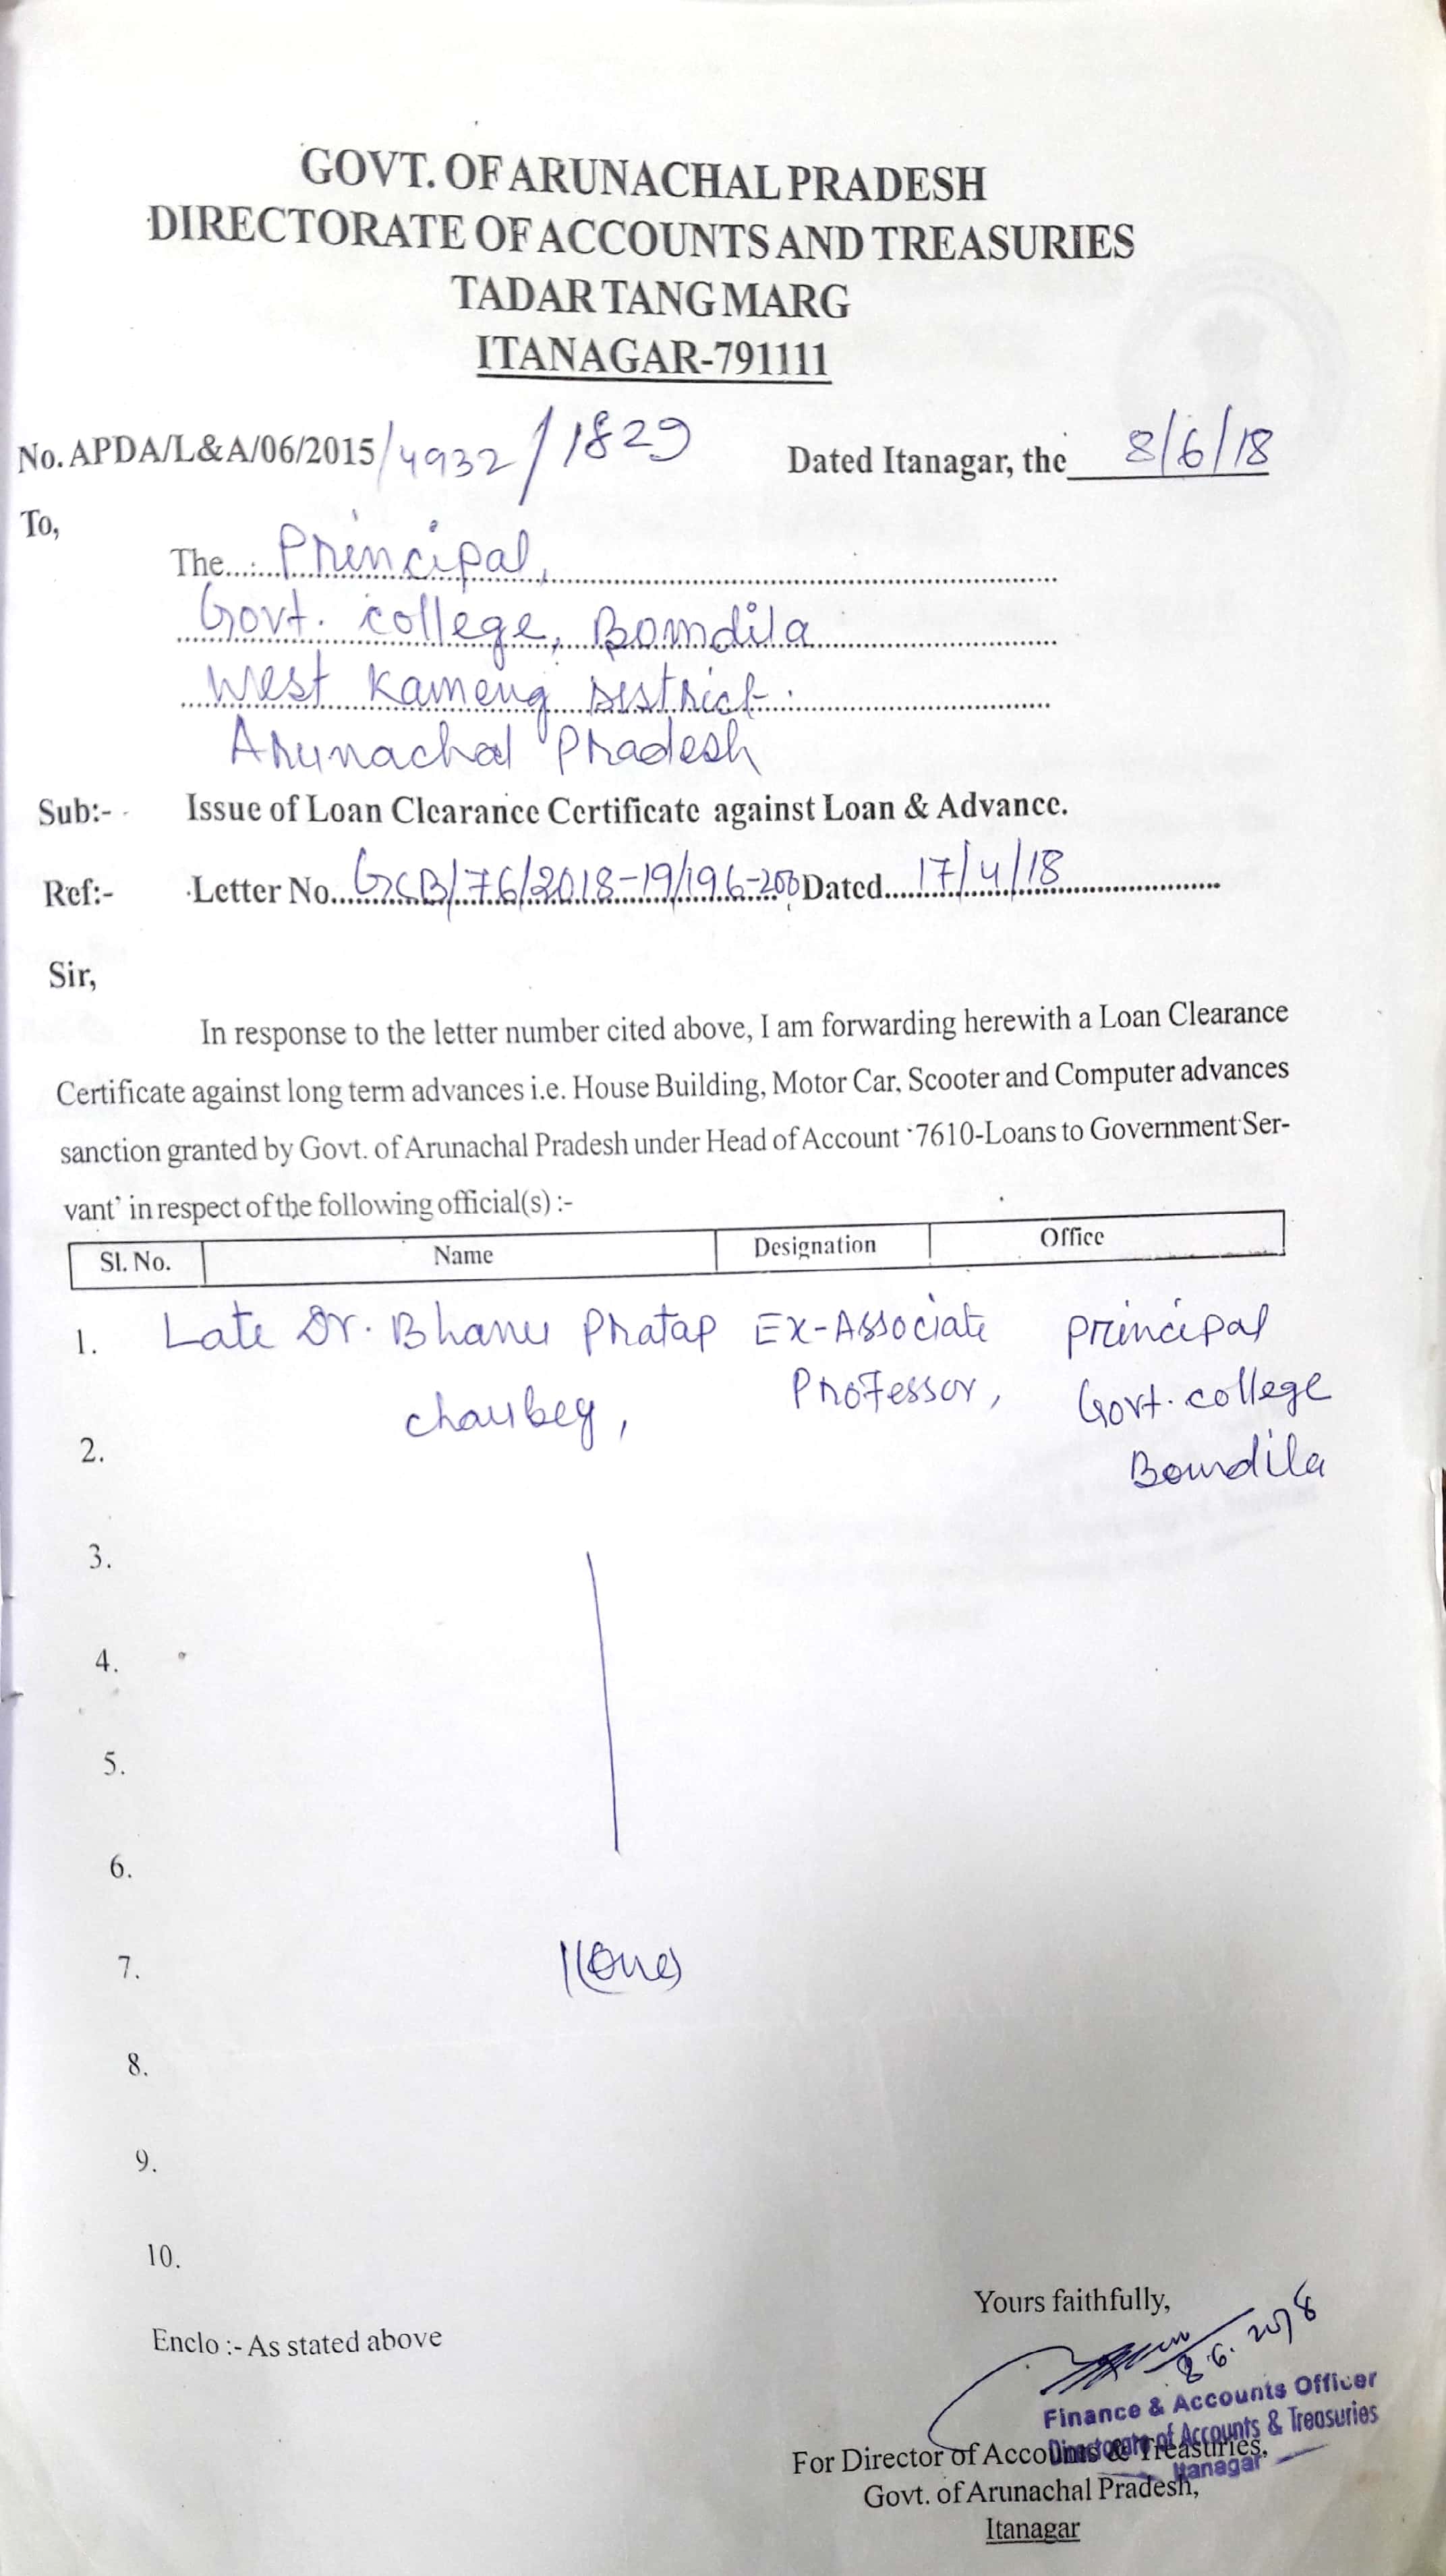 GOVT. OF ARUNACHAL PRADESH
DIRECTORATE OF ACCOUNTS AND TREASURIES
TADAR TANG MARG
ITANAGAR-791111
No. APDA/L&A/06/2015/4932/1829 Dated Itanagar, the 8/6/18
To,
The Principal,
Govt. college, Bomdila
West Kameng District.
Arunachal Pradesh
Sub:- Issue of Loan Clearance Certificate against Loan & Advance.
Ref:- Letter No. GCB/76/2018-19/196-200 Dated 17/4/18
Sir,
In response to the letter number cited above, I am forwarding herewith a Loan Clearance
Certificate against long term advances i.e. House Building, Motor Car, Scooter and Computer advances
sanction granted by Govt. of Arunachal Pradesh under Head of Account '7610-Loans to Government Ser-
vant' in respect of the following official(s) :-
Sl. No. Name Designation Office
1. Late Dr. Bhanu Pratap Ex-Associate Principal
chaubey, Professor, Govt. college
2. Bomdila
3.
4.
5.
6.
7. 1(One)
8.
9.
10.
Yours faithfully,
Enclo :- As stated above
8.6.2018
Finance & Accounts Officer
Directorate of Accounts & Treasuries
Itanagar
For Director of Accounts & Treasuries,
Govt. of Arunachal Pradesh,
Itanagar